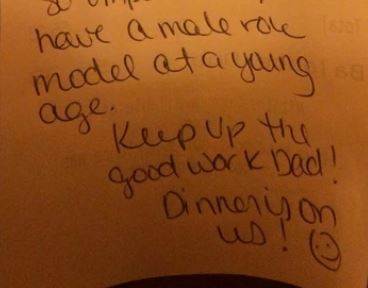 have a male role
model at a young
age.
Keep up the
good work Dad!
Dinner is on
us!